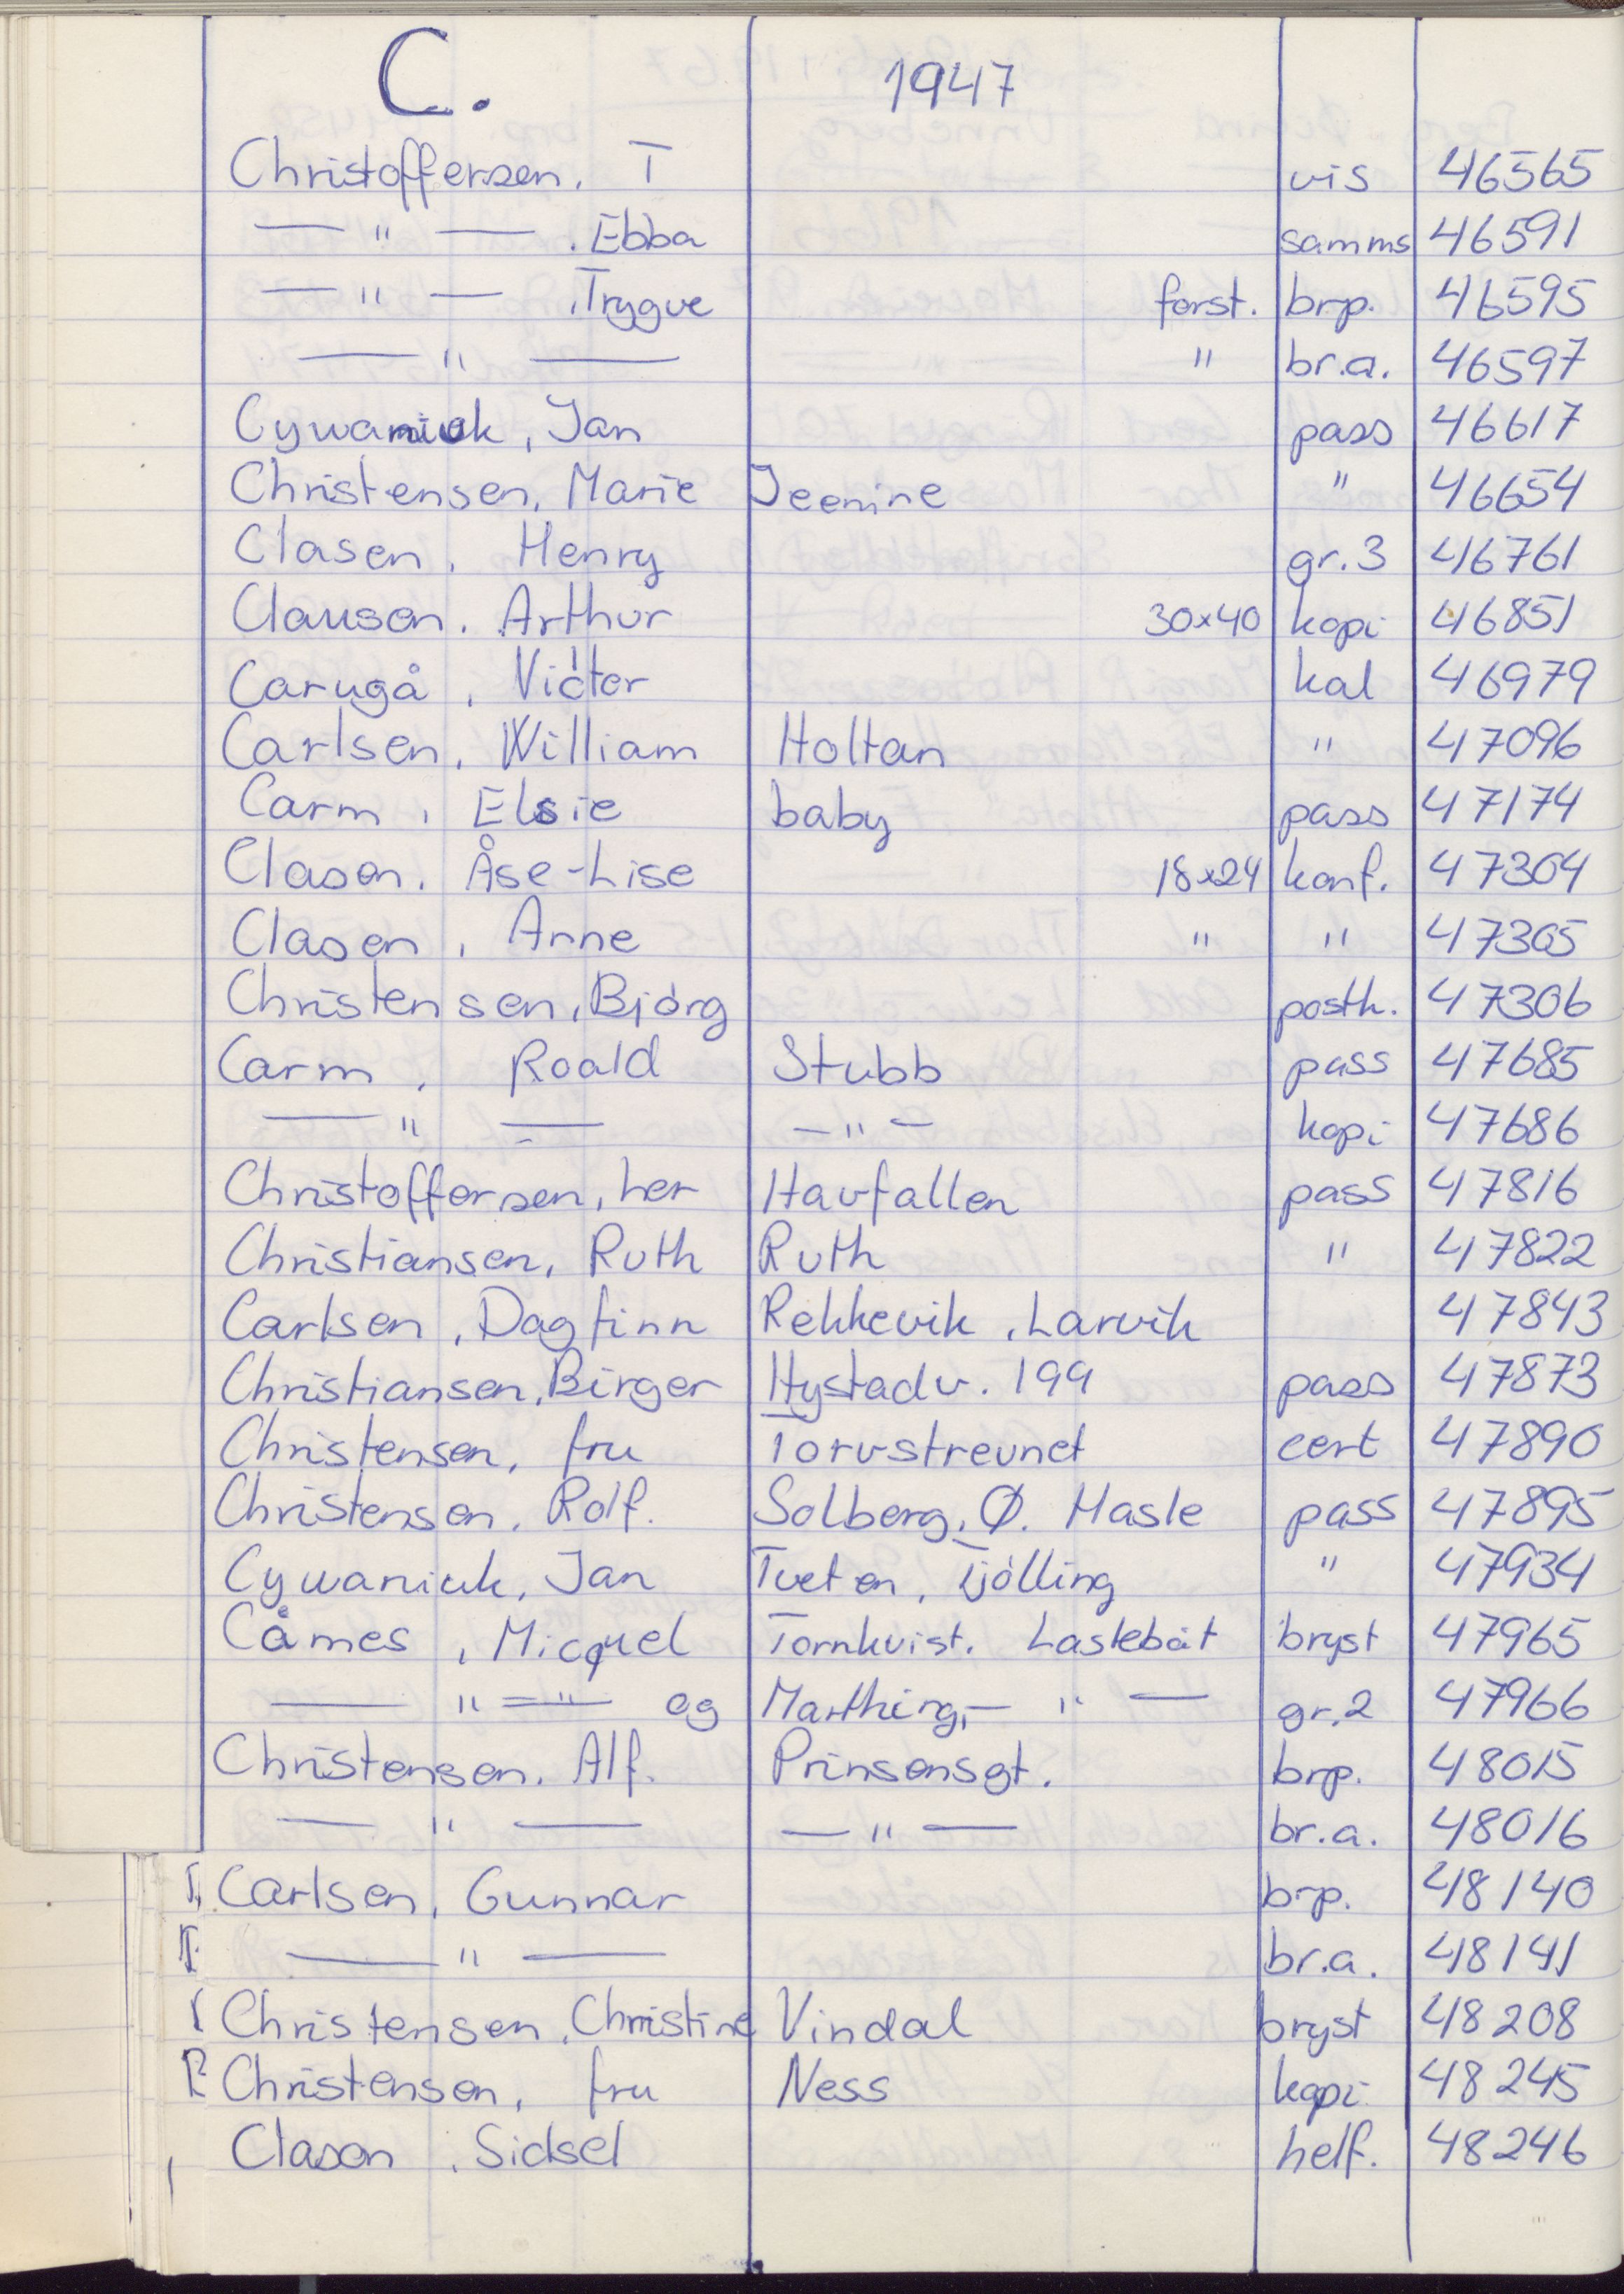 C. 1947
Christoffersen, T vis 46565
— " — . Ebba samms 46591
— " — . Trygve forst. brp. 46595
— " — " br.a. 46597
Cywaniuk, Jan pass 46617
Christensen, Marie Jeenine " 46654
Clasen, Henry gr.3 46761
Clausen. Arthur 30x40 kopi 46851
Carugå, Victor kal 46979
Carlsen, William Holtan " 47096
Carm, Elsie baby pass 47174
Clasen, Åse-Lise 18x24 konf. 47304
Clasen, Arne " " 47305
Christensen, Bjørg postk. 47306
Carm, Roald Stubb pass 47685
— " — — " — kopi 47686
Christoffersen, her Havfallen pass 47816
Christiansen, Ruth Ruth " 47822
Carlsen, Dagfinn Rekkevik, Larvik 47843
Christiansen, Birger Hystadv. 199 pass 47873
Christensen, fru Torvstreunet cert 47890
Christensen, Rolf. Solberg, Ø. Hasle pass 47895
Cywaniuk, Jan Tveten, Tjølling " 47934
Cåmes, Micquel Tornkvist. Lastebåt bryst 47965
— " = " — og Marthing, — " — gr.2 47966
Christensen. Alf. Prinsensgt. brp. 48015
— " — — " — br.a. 48016
Carlsen, Gunnar brp. 48140
— " — br.a. 48141
Christensen, Christine Vindal bryst 48208
Christensen, fru Ness kopi 48245
Clasen, Sidsel helf. 48246